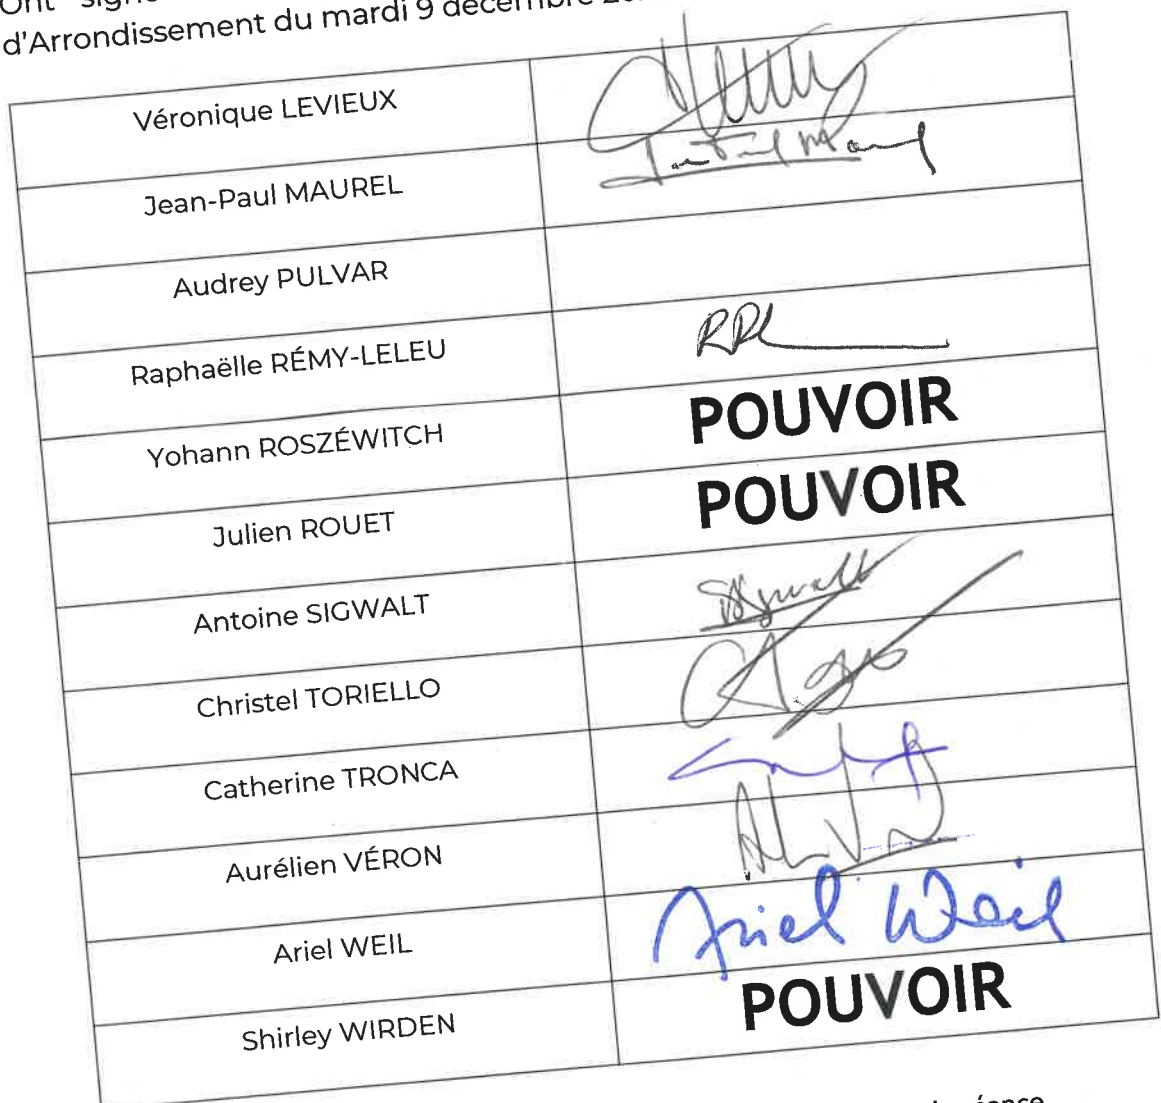 Ont
d'Arrondissement du mardi 9 décembre
Véronique LEVIEUX
Jean-Paul MAUREL
Audrey PULVAR
Raphaëlle RÉMY-LELEU
Yohann ROSZÉWITCH POUVOIR
Julien ROUET POUVOIR
Antoine SIGWALT
Christel TORIELLO
Catherine TRONCA
Aurélien VÉRON
Ariel WEIL Ariel Weil
Shirley WIRDEN POUVOIR